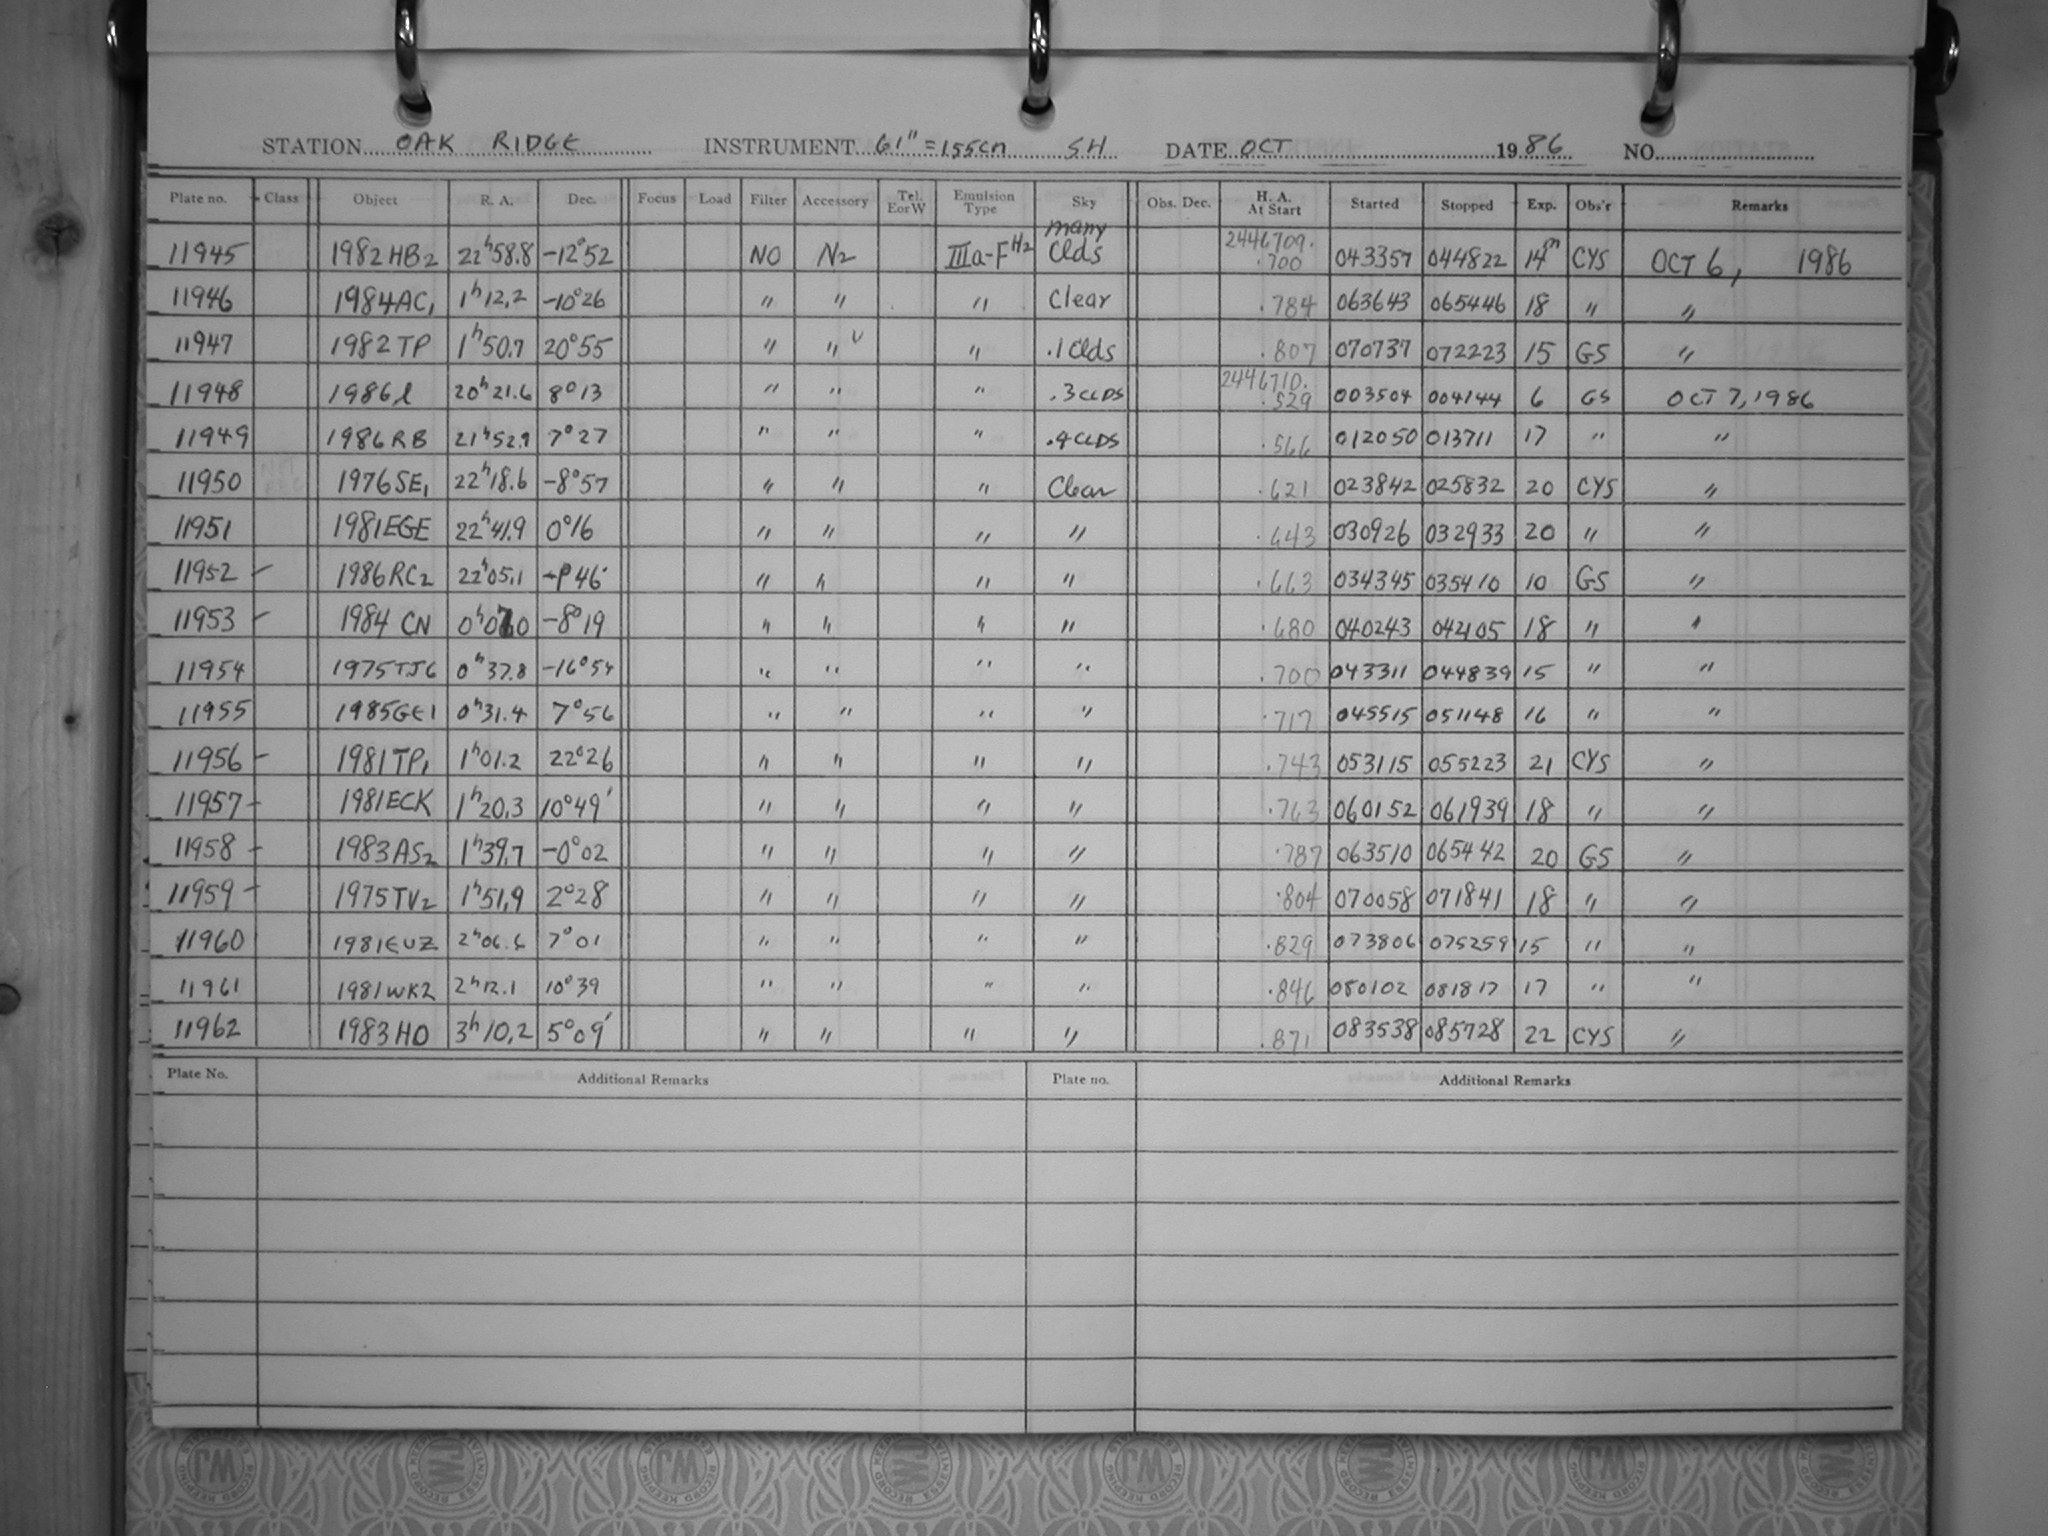 STATION OAK RIDGE INSTRUMENT 61" = 155cm SH DATE OCT 1986 NO.
Plate no. Class Object R. A. Dec. Focus Load Filter Accessory Tel. E or W Emulsion Type Sky Obs. Dec. H. A. At Start Started Stopped Exp. Obs'r Remarks
11945 1982 HB2 22h58.8 -12°52 NO N2 IIIa-F H2 many Clds 2446709. .700 043357 044822 14m CYS OCT 6, 1986
11946 1984AC1 1h12.2 -10°26 " " " Clear .784 063643 065446 18 " "
11947 1982 TP 1h50.7 20°55 " " " .1 Clds .807 070737 072223 15 GS "
11948 1986l 20h21.6 8°13 " " " .3 CLDS 2446710. .529 003504 004144 6 GS OCT 7, 1986
11949 1986 RB 21h52.9 7°27 " " " .4 CLDS .566 012050 013711 17 " "
11950 1976 SE1 22h18.6 -8°57 " " " Clear .621 023842 025832 20 CYS "
11951 1981EGE 22h41.9 0°16 " " " " .643 030926 032933 20 " "
11952 - 1986 RC2 22h05.1 46' " " " " .663 034345 035410 10 GS "
11953 - 1984 CN -8°19 " " " " .680 040243 042105 18 " "
11954 1975TJ6 0h37.8 -16°54 " " " " .700 043311 044839 15 " "
11955 1985GE1 0h31.4 7°56 " " " " .717 045515 051148 16 " "
11956 - 1981 TP1 1h01.2 22°26 " " " " .743 053115 055223 21 CYS "
11957 - 1981ECK 1h20.3 10°49' " " " " .763 060152 061939 18 " "
11958 - 1983 AS2 1h39.7 -0°02 " " " " .787 063510 065442 20 GS "
11959 - 1975 TV2 1h51.9 2°28 " " " " .804 070058 071841 18 " "
11960 1981EUZ 2h06.6 7°01 " " " " .829 073806 075259 15 " "
11961 1981WK2 2h12.1 10°39 " " " " .846 080102 081817 17 " "
11962 1983 HO 3h10.2 5°09' " " " " .871 083538 085728 22 CYS "
Plate No. Additional Remarks Plate no. Additional Remarks